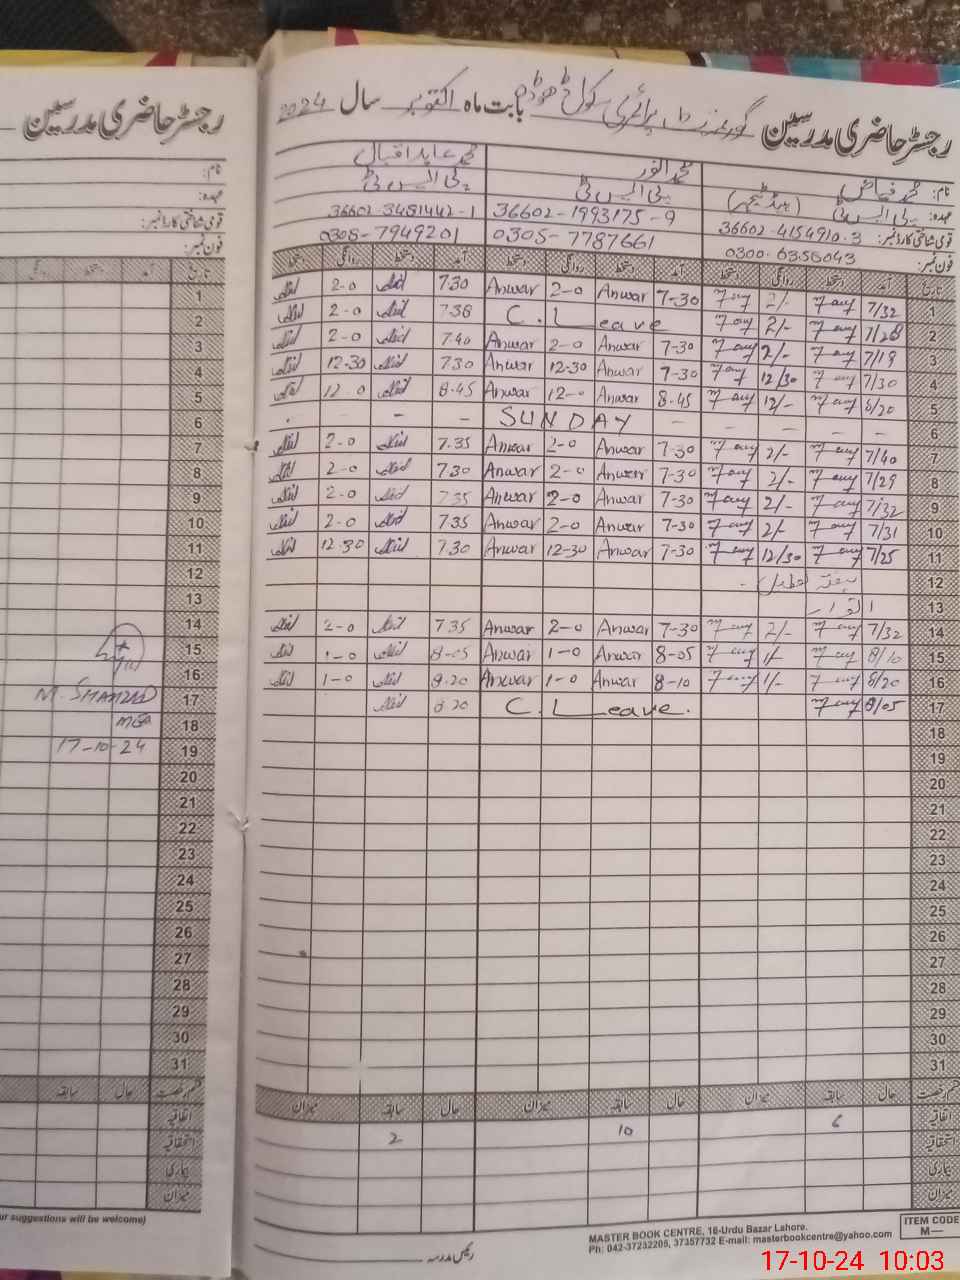 رجسٹر حاضری مدرسین
رجسٹر حاضری مدرسین گورنمنٹ پرائمری سکول بابت ماہ اکتوبر سال 2024
نام:
عہدہ:
قومی شناختی کارڈ نمبر:
فون نمبر:
نام: محمد فیاض محمد انور محمد عابد اقبال
عہدہ: پی ایس ٹی (ہیڈ ٹیچر) پی ایس ٹی پی ایس ٹی
قومی شناختی کارڈ نمبر: 36602-4154910-3 36602-1993175-9 36602-3481442-1
فون نمبر: 0300-6356043 0305-7787661 0308-7949201
تاریخ آمد دستخط روانگی
تاریخ آمد دستخط روانگی دستخط آمد دستخط روانگی دستخط آمد دستخط روانگی دستخط
1 7/32 2/- 7-30 Anwar 2-0 Anwar 7.30 2-0
2 7/28 2/- C. Leave 7.36 2-0
3 7/19 2/- 7-30 Anwar 2-0 Anwar 7.40 2-0
4 7/30 12/30 7-30 Anwar 12-30 Anwar 7.30 12-30
5 8/20 12/- 8.45 Anwar 12-0 Anwar 8.45 12.0
6 - - - - SUNDAY - - -
7 7/40 2/- 7-30 Anwar 2-0 Anwar 7.35 2-0
8 7/29 2/- 7-30 Anwar 2-0 Anwar 7.30 2-0
9 7/32 2/- 7-30 Anwar 2-0 Anwar 7.35 2-0
10 7/31 2/- 7-30 Anwar 2-0 Anwar 7.35 2-0
11 7/25 12/30 7-30 Anwar 12-30 Anwar 7.30 12-30
12 ہفتہ تعطیل -
13 اتوار
14 7/32 2/- 7-30 Anwar 2-0 Anwar 7.35 2-0
15 8/10 1/- 8-05 Anwar 1-0 Anwar 8-05 1-0
16 8/20 1/- 8-10 Anwar 1-0 Anwar 8.20 1-0
17 8/05 C. Leave. 8.20
18
19
20
21
22
23
24
25
26
27
28
29
30
31
1
2
3
4
5
6
7
8
9
10
11
12
13
14
15
16
17 M. SHAHZAD
18 MEA
19 17-10-24
20
21
22
23
24
25
26
27
28
29
30
31
قسم رخصت حال سابقہ
اتفاقیہ
استحقاقیہ
بیماری
میزان
قسم رخصت حال سابقہ میزان حال سابقہ میزان حال سابقہ میزان
اتفاقیہ 6 10 2
استحقاقیہ
بیماری
میزان
ur suggestions will be welcome)
رئیس مدرسہ
MASTER BOOK CENTRE, 16-Urdu Bazar Lahore.
Ph: 042-37232205, 37357732 E-mail: masterbookcentre@yahoo.com
ITEM CODE
M—
17-10-24 10:03